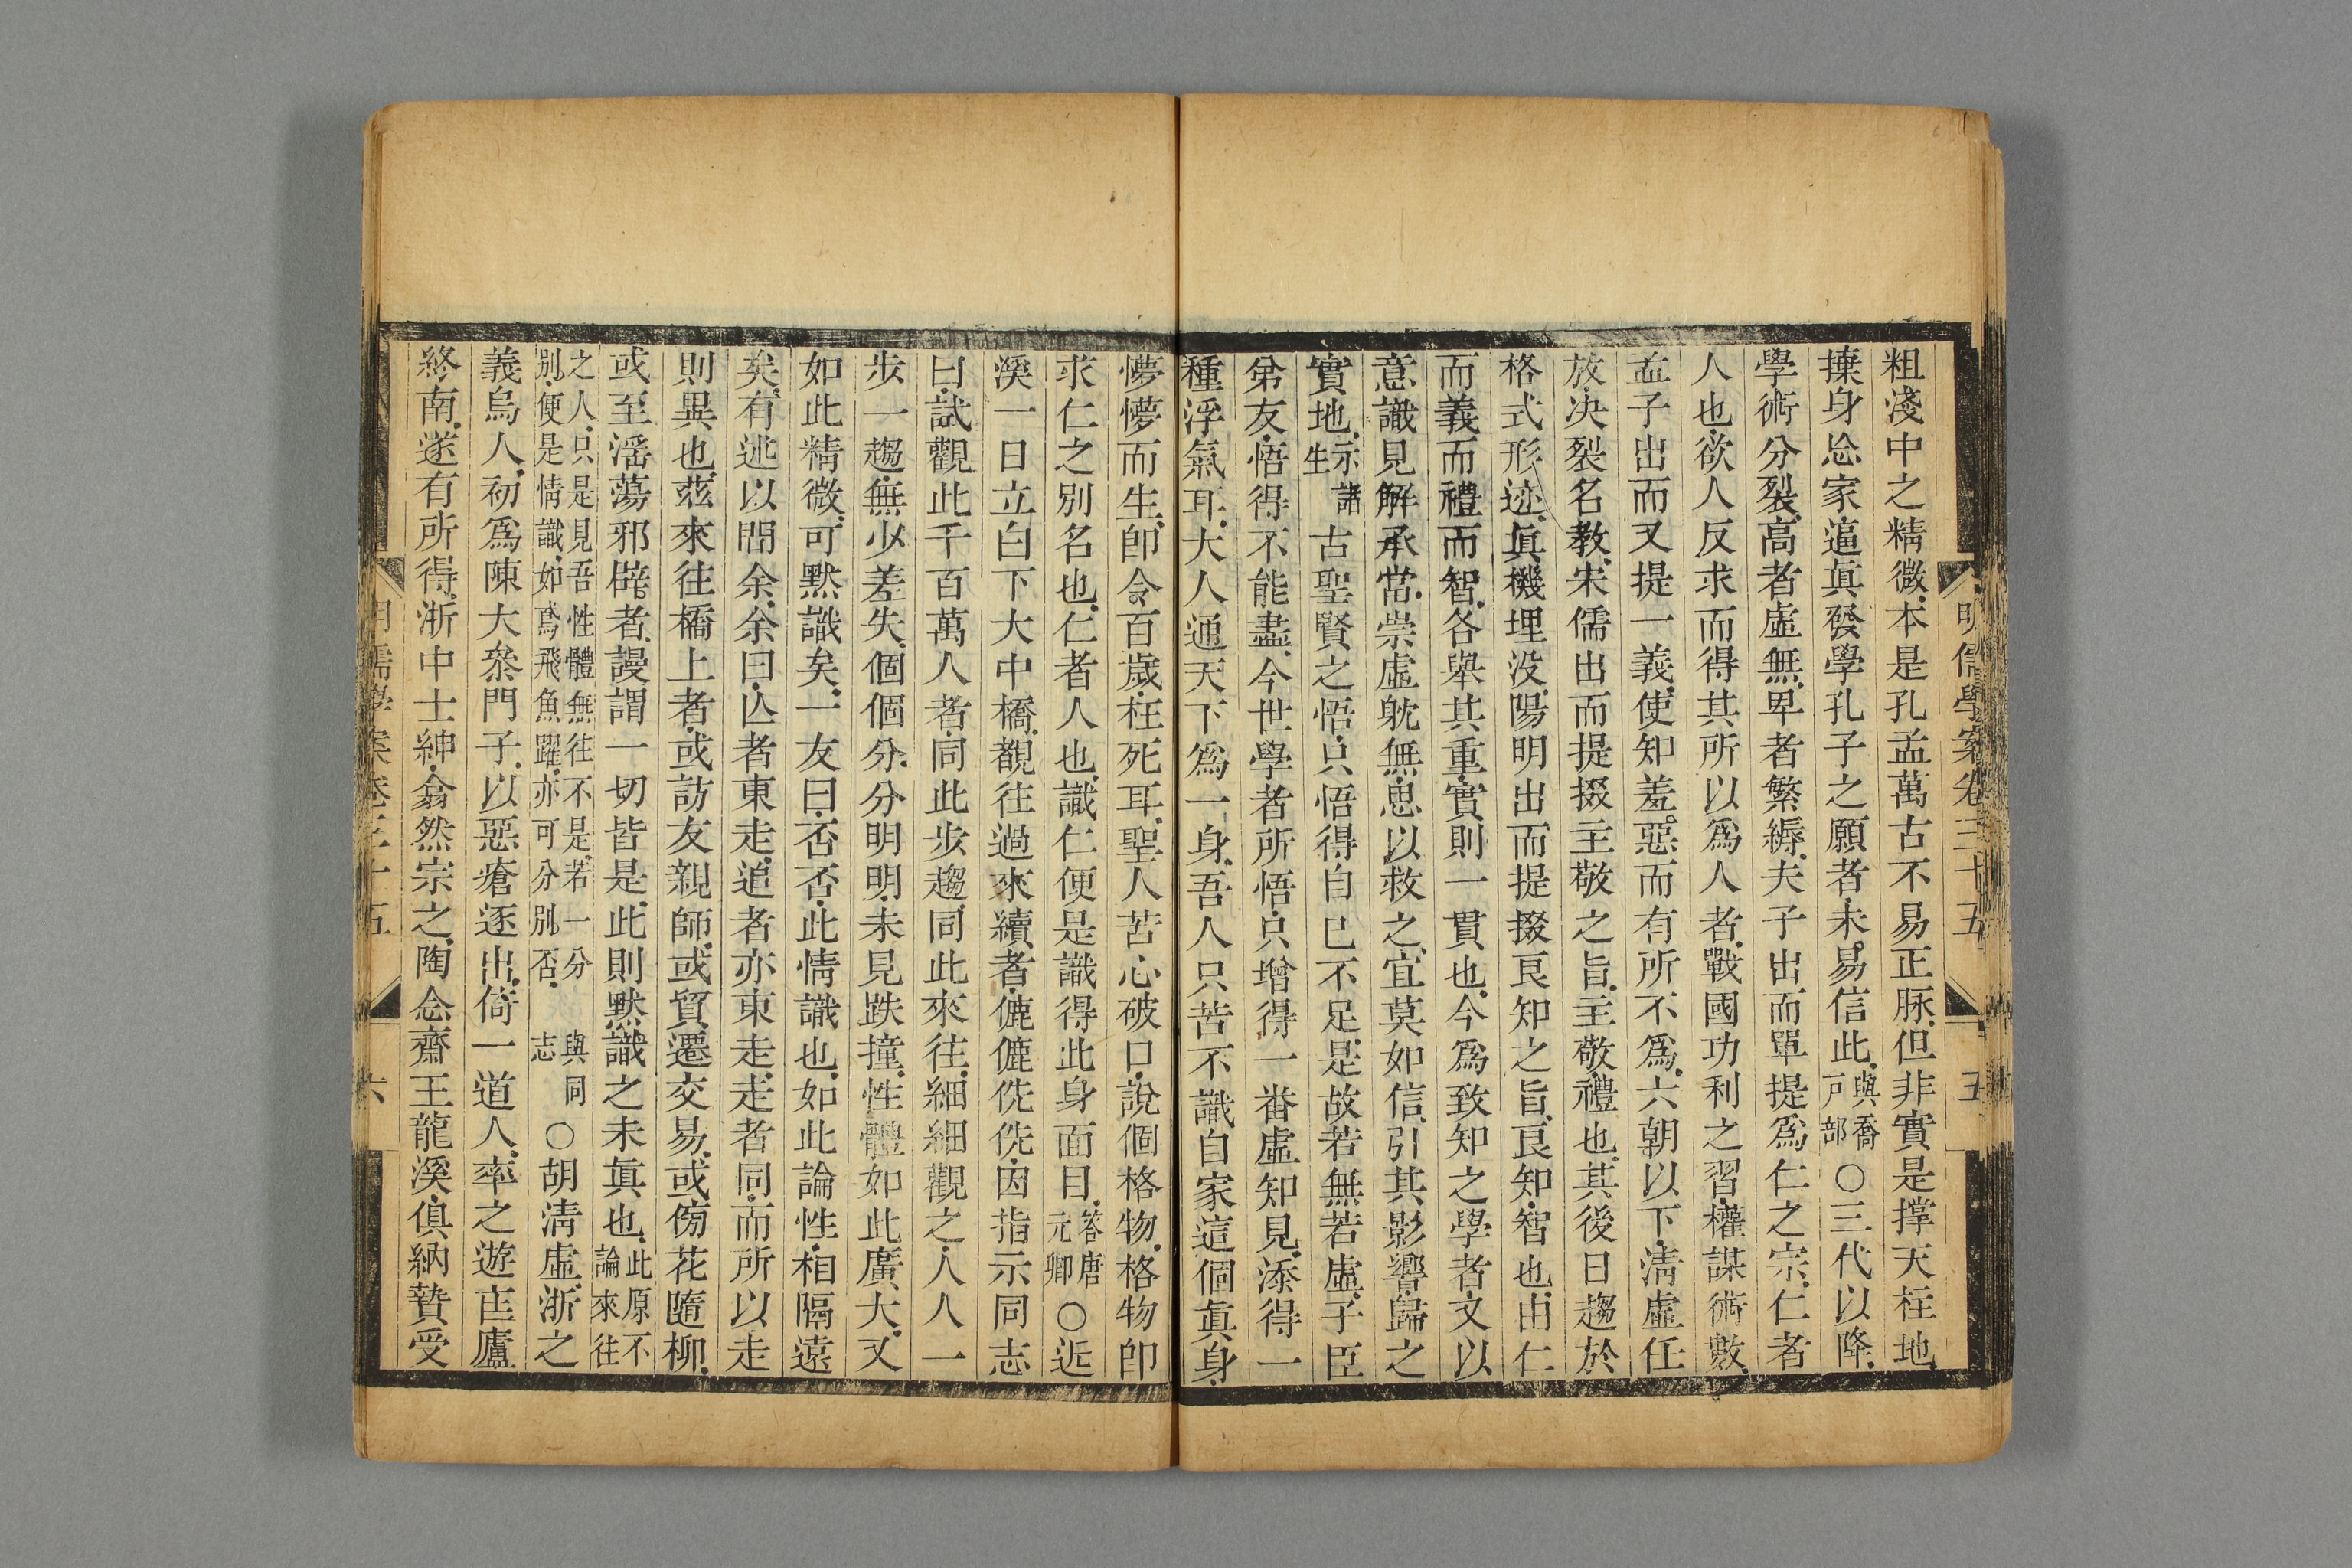 明儒學案卷三十五
五
粗淺中之精微本是孔孟萬古不易正脉但非實是撑天柱地
㨿身忘家逼眞發學孔子之願者未易信此與喬戶部○三代以降
學術分裂高者虛無卑者繁縟夫子出而單提爲仁之宗仁者
人也欲人反求而得其所以爲人者戰國功利之習權謀術數
孟子出而又提一義使知羞惡而有所不爲六朝以下淸虛任
放决裂名教宋儒出而提掇主敬之旨主敬禮也其後日趨於
格式形迹眞機埋没陽明出而提掇良知之旨良知智也由仁
而義而禮而智各舉其重實則一貫也今爲致知之學者文以
意識見解承當崇虛躭無思以救之宜莫如信引其影響歸之
實地示諸生古聖賢之悟只悟得自己不足是故若無若虛子臣
弟友悟得不能盡今世學者所悟只增得一番虛知見添得一
種浮氣耳大人通天下爲一身吾人只苦不識自家這個眞身
懜懜而生卽令百歲枉死耳聖人苦心破口說個格物格物卽
求仁之別名也仁者人也識仁便是識得此身面目答唐元卿○近
溪一日立白下大中橋覩往過來續者儦儦侁侁因指示同志
曰試觀此千百萬人者同此步趨同此來往細細觀之人人一
步一趨無少差失個個分分明明未見跌撞性體如此廣大又
如此精微可默識矣一友曰否否此情識也如此論性相隔遠
矣有述以問余余曰亾者東走追者亦東走走者同而所以走
則異也茲來往橋上者或訪友親師或貿遷交易或傍花隨柳
或至滛蕩邪僻者謾謂一切皆是此則默識之未眞也此原不論來往
之人只是見吾性體無往不是若一分別便是情識如鳶飛魚躍亦可分別否與同志○胡淸虛浙之
義烏人初爲陳大叅門子以惡瘡逐出倚一道人率之遊匡廬
終南遂有所得浙中士紳翕然宗之陶念齋王龍溪俱納贄受
明儒學案卷三十五
六